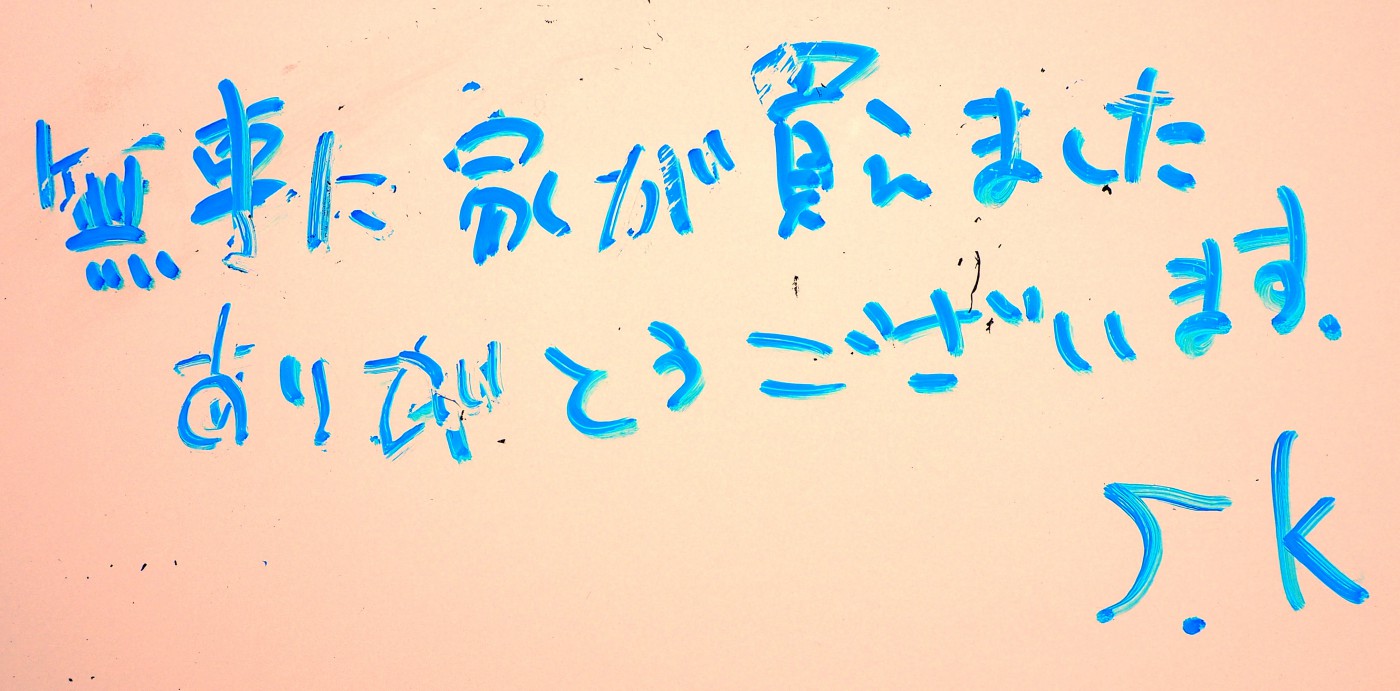 無事に家が買えました
ありがとうございます.
S.k